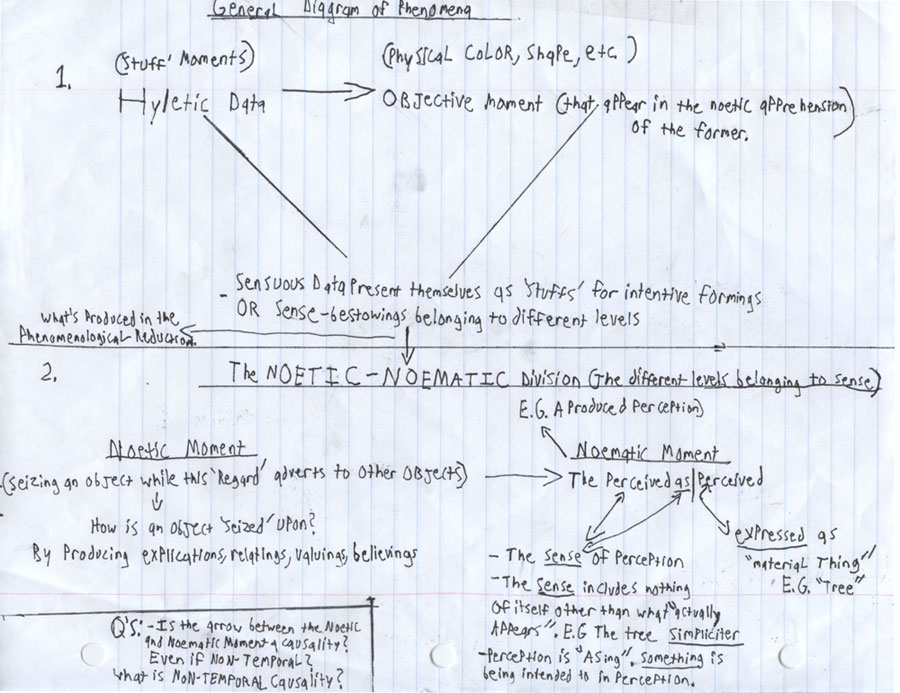 General Diagram of Phenomena
1.
('Stuff' Moments)
(Physical Color, Shape, etc.)
Hyletic Data
Objective moment (that appear in the noetic apprehension
of the former.)
- Sensuous Data Present themselves as 'stuffs' for intentive formings
OR Sense-bestowings belonging to different levels
What's Produced in the
Phenomenological Reduction.
2.
The NOETIC-NOEMATIC Division (The different levels belonging to sense)
E.G. A Produced Perception)
Noetic Moment
Noematic Moment
(Seizing an object while this 'Regard' adverts to other Objects)
The Perceived as Perceived
How is an object 'seized' upon?
By Producing explications, relatings, valuings, believings
expressed as
"material Thing"
E.G. "Tree"
- The sense of Perception
- The Sense includes nothing
of itself other than what "actually
Appears". E.G The tree simpliciter
- Perception is "ASing". Something is
being intended to in Perception.
Q's: - Is the arrow between the Noetic
and Noematic Moment a causality?
Even if NON-Temporal?
What is NON-TEMPORAL Causality?